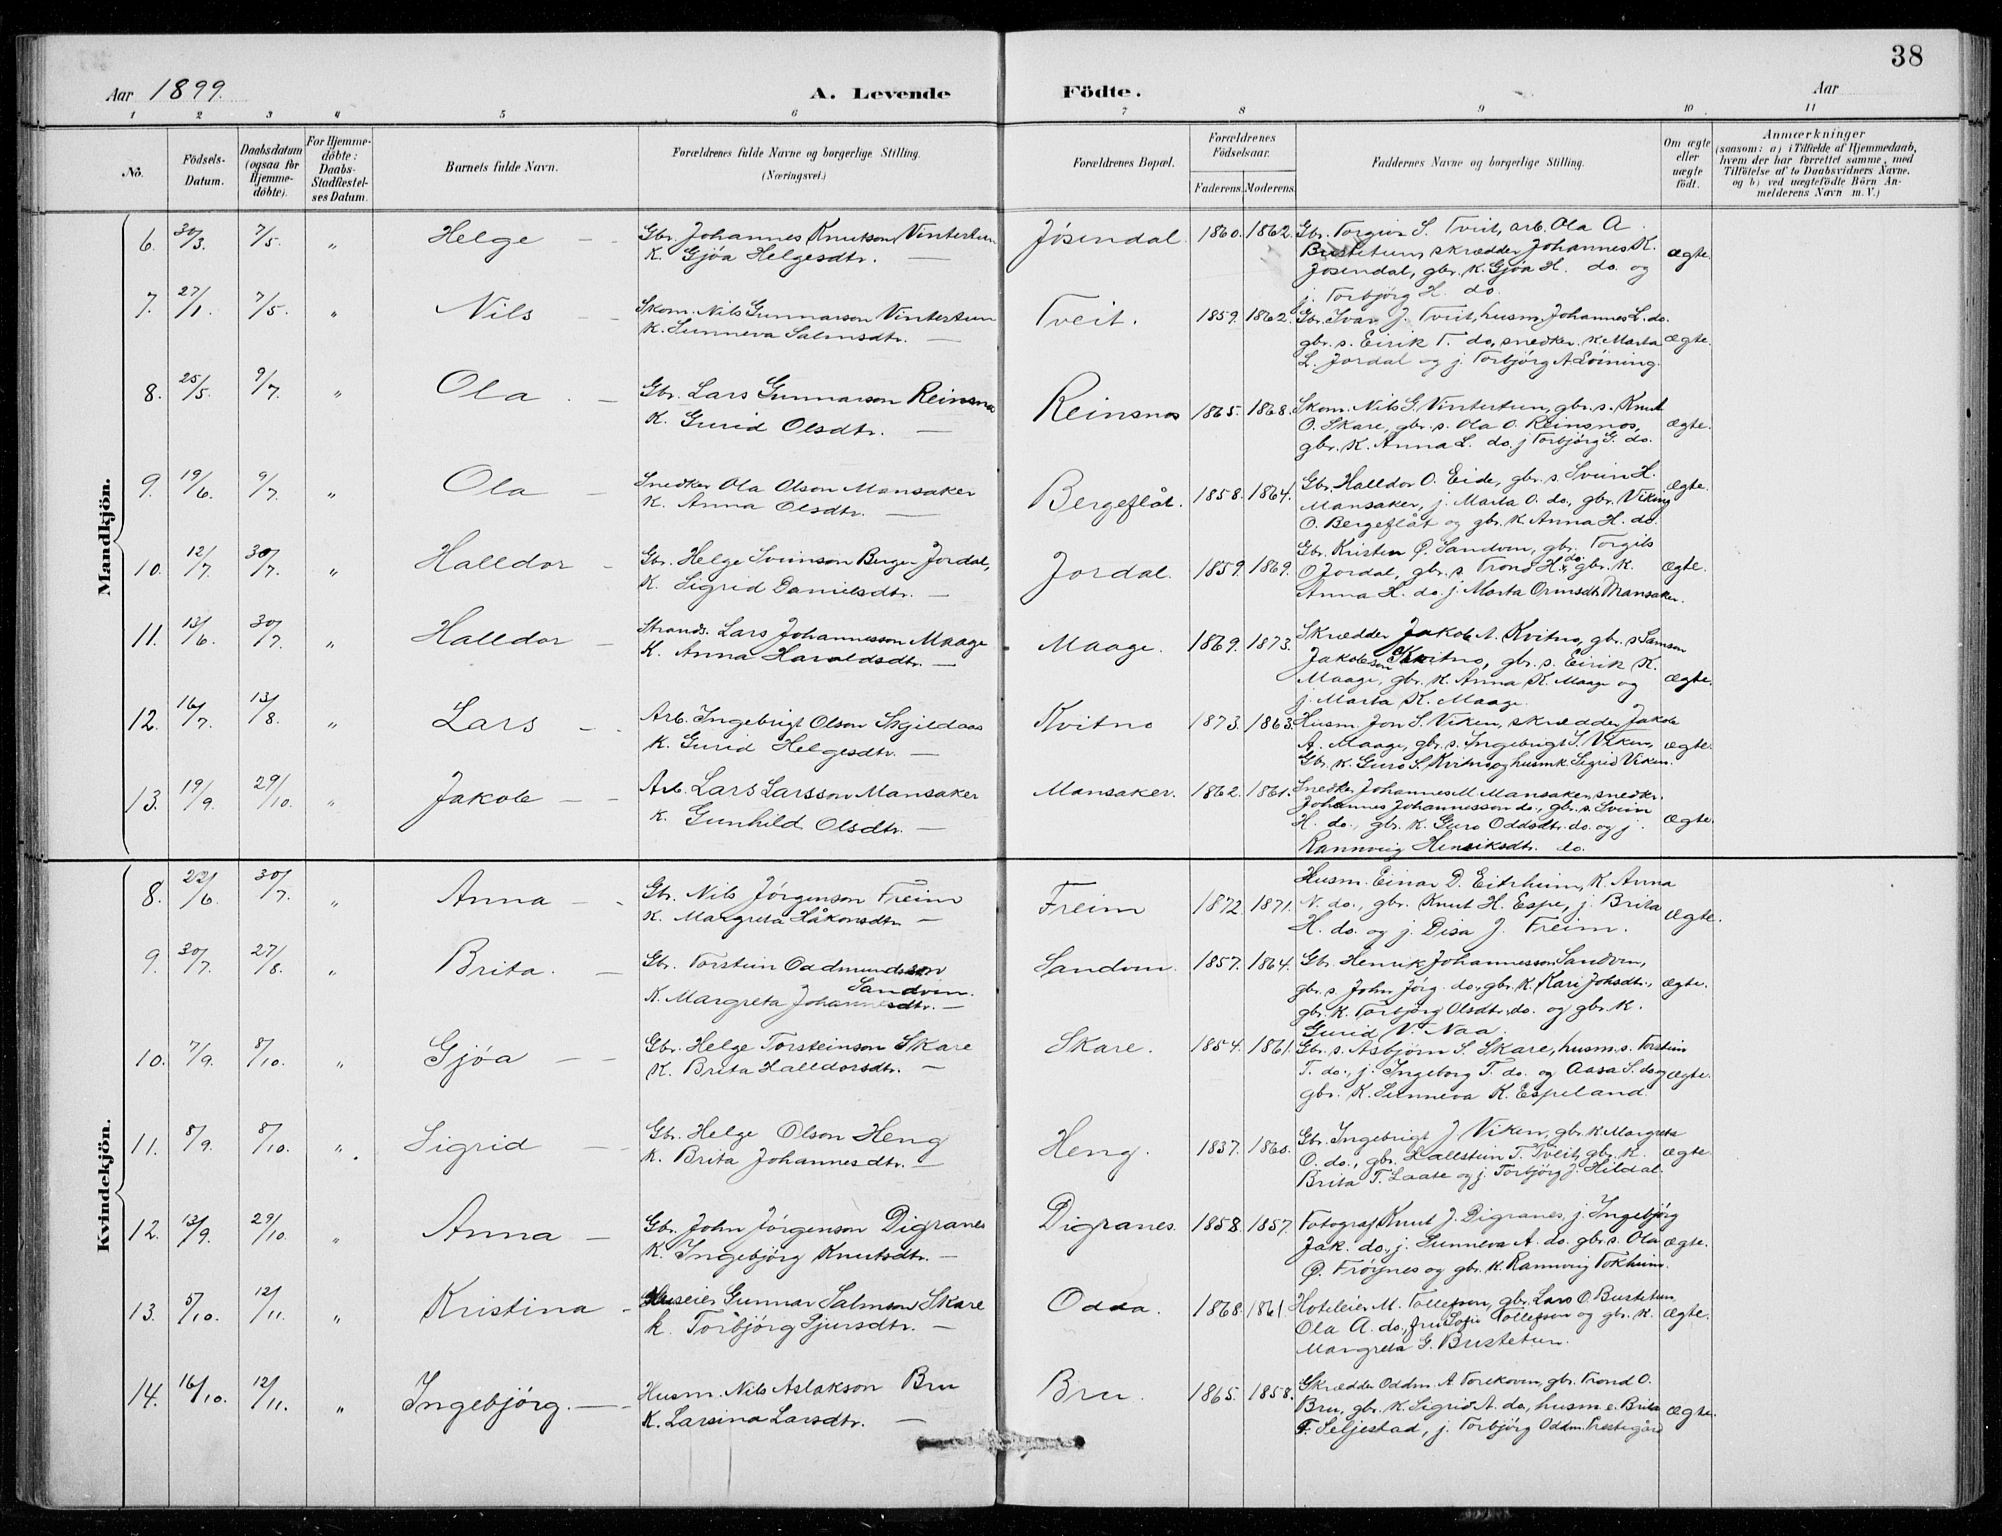 38
Aar 1899. A. Levende Födte. Aar
1 2 3 4 5 6 7 8 9 10 11
No. Födsels-Datum. Daabsdatum (ogsaa før Hjemme-döbte). For Hjemme-döbte: Daabs-Stadfæstel-ses Datum. Barnets fulde Navn. Forældrenes fulde Navne og borgerlige Stilling. (Næringsvei.) Forældrenes Bopæl. Forældrenes Födselsaar. Faderens. Moderens. Faddernes Navne og borgerlige Stilling. Om ægte eller uægte født. Anmærkninger (saasom: a) i Tilfælde af Hjemmedaab, hvem der har forrettet samme, med Tilföielse af to Daabsvidners Navne. og b) ved uægtefödte Börn An-melderens Navn m. V.)
Mandkjön.
6. 30/3. 7/5. " Helge Gbr. Johannes Knutson Vintertun Jøsendal. 1860. 1862. Gbr. Torgeir S. Tveit, arb. Ola A.
K. Gjøa Helgesdtr. Bustetun, skrædder Johannes K. ægte.
Jøsendal, gbr. k. Gjøa H. do. og
j. Torbjörg H. do.
7. 27/1. 7/5. " Nils Skom. Nils Gunnarson Vintertun Tveit. 1859. 1862. Gbr. Ivar J. Tveit, husm. Johannes L. do.
K. Sunneva Salmsdtr. gbr. s. Eirik T. do, snedker. k. Marta ægte.
L. Jordal og j. Torbjörg A. Löining.
8. 25/5. 9/7. " Ola Gbr. Lars Gunnarson Reinsnos Reinsnos 1865. 1868. Skom. Nils G. Vintertun, gbr. s. Knut
K. Gurid Olsdtr. O. Skare, gbr. s. Ola O. Reinsnos, ægte.
gbr. k. Anna L. do. j Torbjörg G. do.
9. 19/6. 9/7. " Ola Snedker Ola Olson Mansaker Bergeflåt. 1858. 1864. Gbr. Halldor O. Eide, gbr. s. Svein H. ægte.
K. Anna Olsdtr. Mansaker, j. Marta O. do, gbr. Viking
O. Bergeflåt og gbr. k. Anna H. do.
10. 12/7. 30/7. " Halldor Gbr. Helge Sveinson Berge Jordal, Jordal. 1859. 1869. Gbr. Kristen Ø. Sandven, gbr. Torgils
K. Sigrid Danielsdtr. O Jordal, gbr. s. Trond H. do, gbr. k. ægte.
Anna H. do. j. Marta Ormsdtr Mansaker.
11. 13/6. 30/7. " Halldor Strands. Lars Johannesson Maage Maage. 1869. 1873. Skrædder Jakob A. Kvitno, gbr. s Samson
K. Anna Haraldsdtr. Jakobson Kvitno, gbr. s. Eirik K. ægte.
Maage, gbr. k. Anna K. Maage og
j. Marta K. Maage.
12. 16/7. 13/8. " Lars Arb. Ingebrigt Olson Skjildaas Kvitno 1873. 1863. Husm. Jon S. Viken, skrædder Jakob
K. Gurid Helgesdtr. A. Maage, gbr. s. Ingebrigt S. Viken, ægte.
Gbr. k. Guro S. Kvitno og husmk Sigrid Viken.
13. 19/9. 29/10. " Jakob Arb. Lars Larsson Mansaker Mansaker. 1862. 1861. Snedker Johannes M Mansaker, snedkr.
K. Gunhild Olsdtr. Johannes Johannesson do., gbr. s. Svein
H. do., gbr. k. Guro Oddsdtr. do. og j. ægte.
Rannveig Henriksdtr. do.
Kvindekjön.
8. 22/6. 30/7. " Anna Gbr. Nils Jörgenson Freim Freim 1872. 1871. Husm. Einar D. Eitrheim, k. Anna
K. Margreta Håkonsdtr. N. do., gbr. Knut H. Espe, j. Brita ægte.
H. do. og j. Disa J. Freim.
9. 30/7. 27/8. " Brita. Gbr. Torstein Oddmundsson Sandven. Sandven. 1857. 1864. Gbr. Henrik Johannesson Sandven,
K. Margreta Johannesdtr. gbr. s. John Jörg. do, gbr. k. Kari Johsdtr., ægte.
gbr. k. Torbjörg Olsdtr. do. og gbr. k.
Gurid V. Naa.
10. 7/9. 8/10. " Gjøa Gbr. Helge Torsteinson Skare Skare. 1854. 1861. Gbr. s. Asbjörn S. Skare, husm. s. Torstein
K. Brita Halldorsdtr. T. do., j. Ingeborg T. do. og Aasa S. do. og ægte.
gbr. k. Sunneva K. Espeland.
11. 8/9. 8/10. " Sigrid Gbr. Helge Olson Heng Heng. 1837. 1860. Gbr. Ingebrigt J. Viken, gbr. k. Margreta
K. Brita Johannesdtr. O. do., gbr. Hallstein T. Tveit, gbr. k. ægte.
Brita T. Laate og j. Torbjörg J. Hildal.
12. 13/9. 29/10. " Anna Gbr. John Jörgenson Digranes Digranes. 1858. 1857. Fotograf Knut J. Digranes, j. Ingebjörg
K. Ingebjörg Knutsdtr. Jak. do., j. Sunneva A. do. gbr. s. Ola ægte.
Ø. Frøynes og gbr. k. Rannveig Tokheim.
13. 5/10. 12/11. " Kristina Huseier Gunnar Salmson Skare Odda. 1868. 1861. Hoteleier M. Tollefsen, gbr. Lars O. Bustetun,
k. Torbjörg Sjursdtr. Ola A. do, fru Sofie Tollefsen og gbr. k. ægte.
Margreta G. Bustetun.
14. 16/10. 12/11. " Ingebjörg. Husm. Nils Aslakson Bru Bru. 1865. 1858. Skrædder Oddm. A Torekoven, gbr. Trond O.
K. Larsina Larsdtr. Bru, gbr. k. Sigrid A. do, husm. e. Brita ægte.
T. Seljestad, j. Torbjörg Oddm. Prestegård